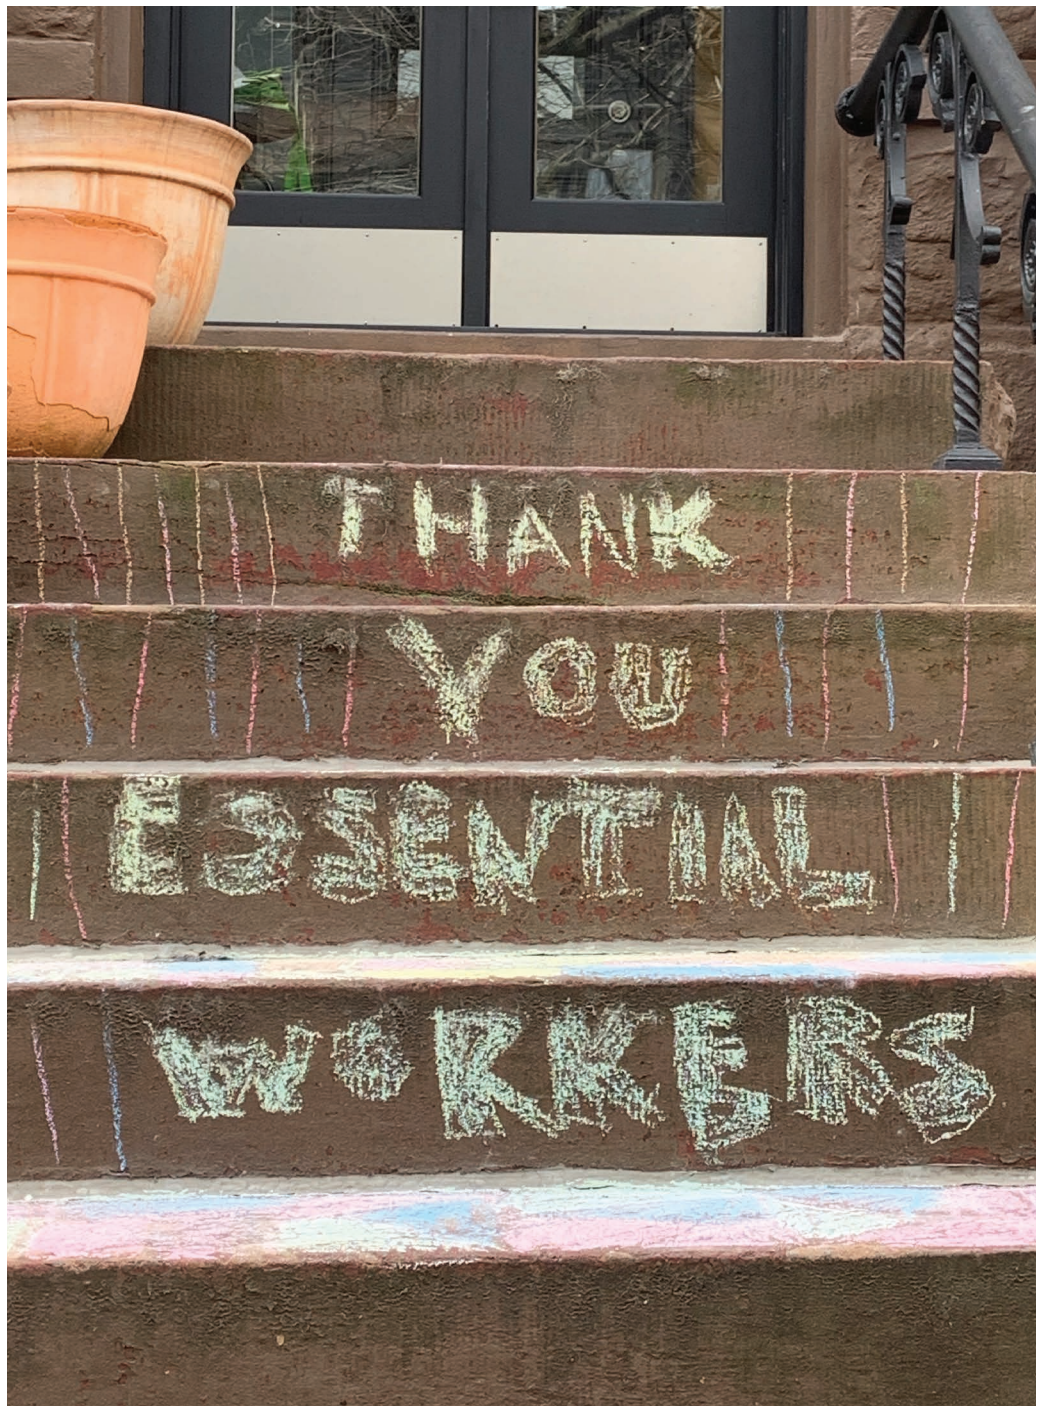 THANK
YOU
ESSENTIAL
WORKERS